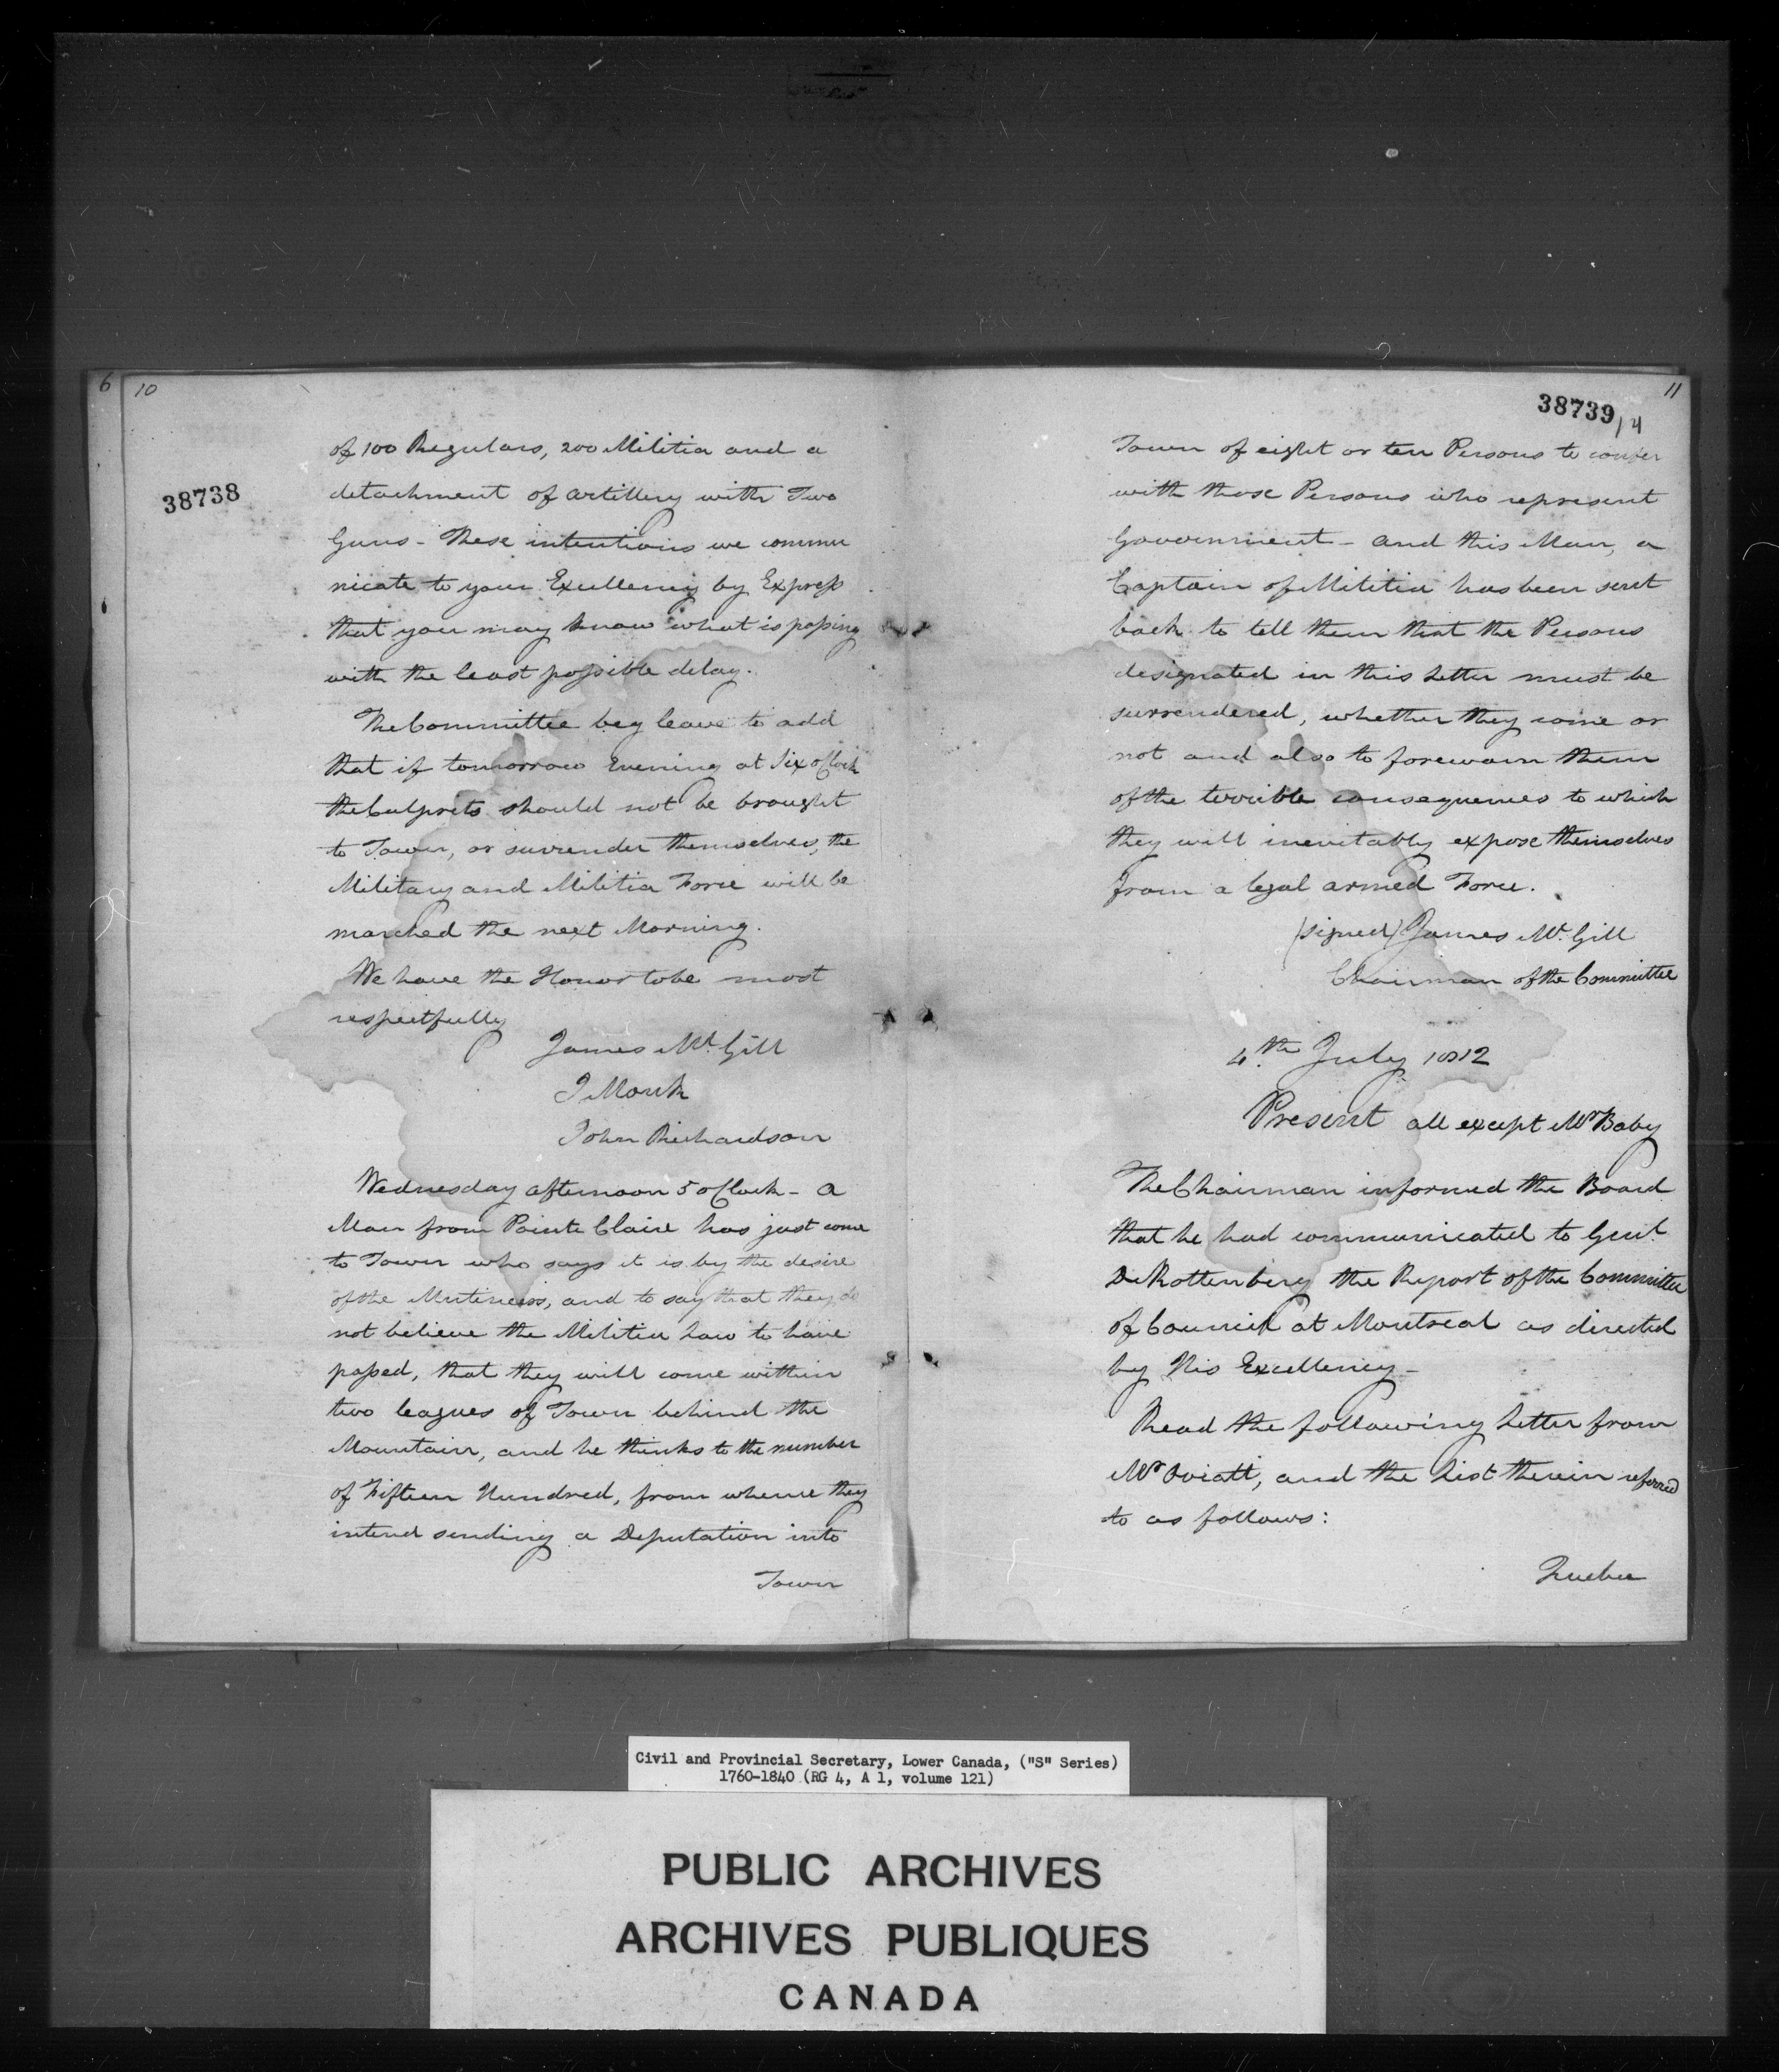 6
10
38738
of 100 Regulars, 200 Militia and a
detachment of artillery with Two
Guns - These intentions we commu
nicate to your Excellency by Express
that you may know what is passing
with the least possible delay.
The Committee beg leave to add
that if tomorrow Evening at Six oClock
the Culprits should not be brought
to Town, or surrender themselves, the
Military and Militia Force will be
marched the next Morning.
We have the Honor to be most
respectfully
James McGill
J Monk
John Richardson
Wednesday afternoon 5 oClock - a
Man from Pointe Claire has just come
to Town who says it is by the desire
of the Mutineers, and to say that they do
not believe the Militia Law to have
passed, that they will come within
two leagues of Town behind the
Mountain, and he thinks to the number
of Fifteen Hundred, from whence they
intend sending a Deputation into
Town
11
38739
/4
Town of eight or ten Persons to confer
with those Persons who represent
Government - and this Man, a
Captain of Militia has been sent
back to tell them that the Persons
designated in this Letter must be
surrendered, whether they come or
not and also to forewarn them
of the terrible consequences to which
they will inevitably expose themselves
from a legal armed Force.
(signed) James McGill
Chairman of the Committee
4th July 1812
Present all except Mr Baby
The Chairman informed the Board
that he had communicated to Genl.
De Rottenberg the Report of the Committee
of Council at Montreal as directed
by His Excellency -
Read the following Letter from
Mr Oviatt, and the List therein referred
to as follows:
Quebec
Civil and Provincial Secretary, Lower Canada, ("S" Series)
1760-1840 (RG 4, A 1, volume 121)
PUBLIC ARCHIVES
ARCHIVES PUBLIQUES
CANADA